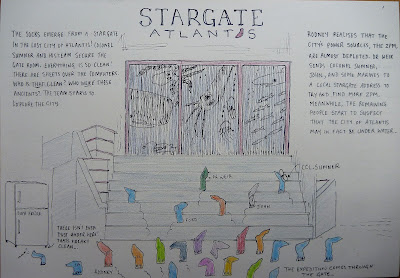 STARGATE
ATLANTIS
THE SOCKS EMERGE FROM A STARGATE
IN THE LOST CITY OF ATLANTIS! COLONEL
SUMNER AND HIS TEAM SECURE THE
GATE ROOM. EVERYTHING IS SO CLEAN!
THERE ARE SHEETS OVER THE COMPUTERS.
WHO IS THAT CLEAN? WHO WERE THESE
ANCIENTS? THE TEAM STARTS TO
EXPLORE THE CITY.
RODNEY REALISES THAT THE
CITY'S POWER SOURCES, THE ZPMs,
ARE ALMOST DEPLETED. DR WEIR
SENDS COLONEL SUMNER,
JOHN, AND SOME MARINES TO
A LOCAL STARGATE ADDRESS TO
TRY AND FIND MORE ZPMs.
MEANWHILE, THE REMAINING
PEOPLE START TO SUSPECT
THAT THE CITY OF ATLANTIS
MAY IN FACT BE UNDER WATER...
COL. SUMNER
DR WEIR
JOHN
FORD
THERE ISN'T EVEN
DUST UNDER HERE!
THATS FREAKY
CLEAN.
RODNEY
THE EXPEDITION COMES THROUGH
THE GATE